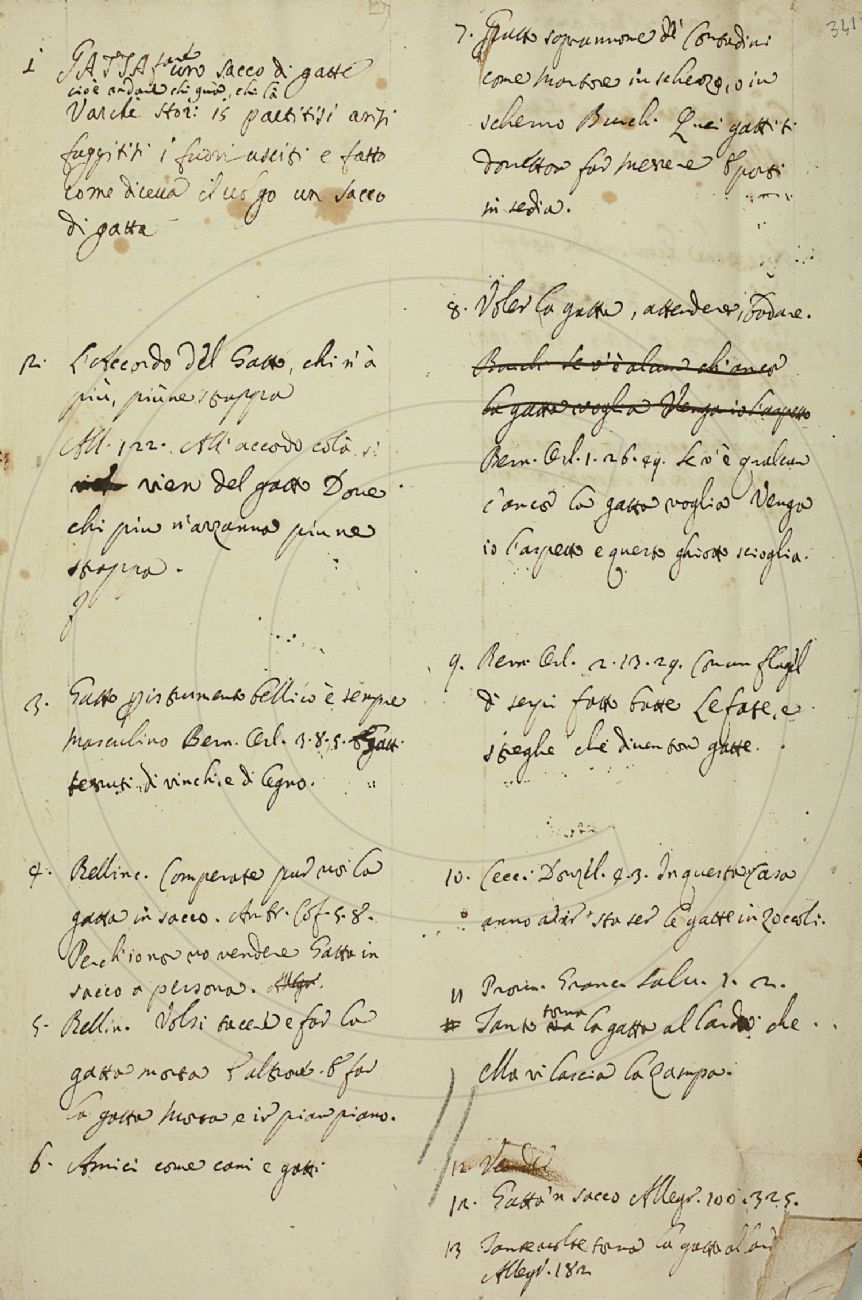 341
1 GATTA fare uno sacco di gatte
cioè andare chi quà, chi là
Varchi Stor: 15 partitisi arsi
fuggitisi i fuori usciti e fatto
come diceva il volgo un sacco
di gatta
2. L'Accordo del Gatto, chi n'à
più, più ne strappa
All. 122. All'accordo colà si
vien del gatto Dove
chi più n'azzanna più ne
strappa.
3. Gatto istrumento bellico è sempre
masculino Bern. Orl. 3.8.5. Gatti
tessuti di vinchi, e di legno.
4. Bellinc. Comperate pur voi la
gatta in sacco. Antr. Cof. 5.8.
Perch'io non vo vendere Gatta in
sacco a persona.
5. Bellin. Volsi tacere e far la
gatta morta E altrove. E far
la gatta morta e ir pian piano.
6. Amici come cani e gatti
7. Gatto soprannome de' Contadini
come Martore in scherzo, o in
scherno Burch. Quei gatti ti
dovetton far messere E porti
in sedia.
8. Voler la gatta, attendere, badare.
Burch. Se v'è alcun ch'ancor
la gatta voglia Venga io l'aspetto
Bern. Orl. 1.26.49. Se v'è qualcun
c'ancor la gatta voglia Venga
io l'aspetto e questo ghiotto scioglia.
9. Bern. Orl. 2.13.29. Con un flagel
di serpi fatto batte Le fate, e
streghe che diventon gatte.
10. Cecc. Donzel. 4.3. In questa Casa
anno a ir 'sta ser le gatte in zoccoli.
11 Prov. Granc. Salv. 1. 2.
Tanto torna la gatta al lardo che
Ella vi lascia la zampa.
12
12. Gatta 'n sacco Allegr. 100. 325.
13 Tante volte torna la gatta al
Allegr. 182